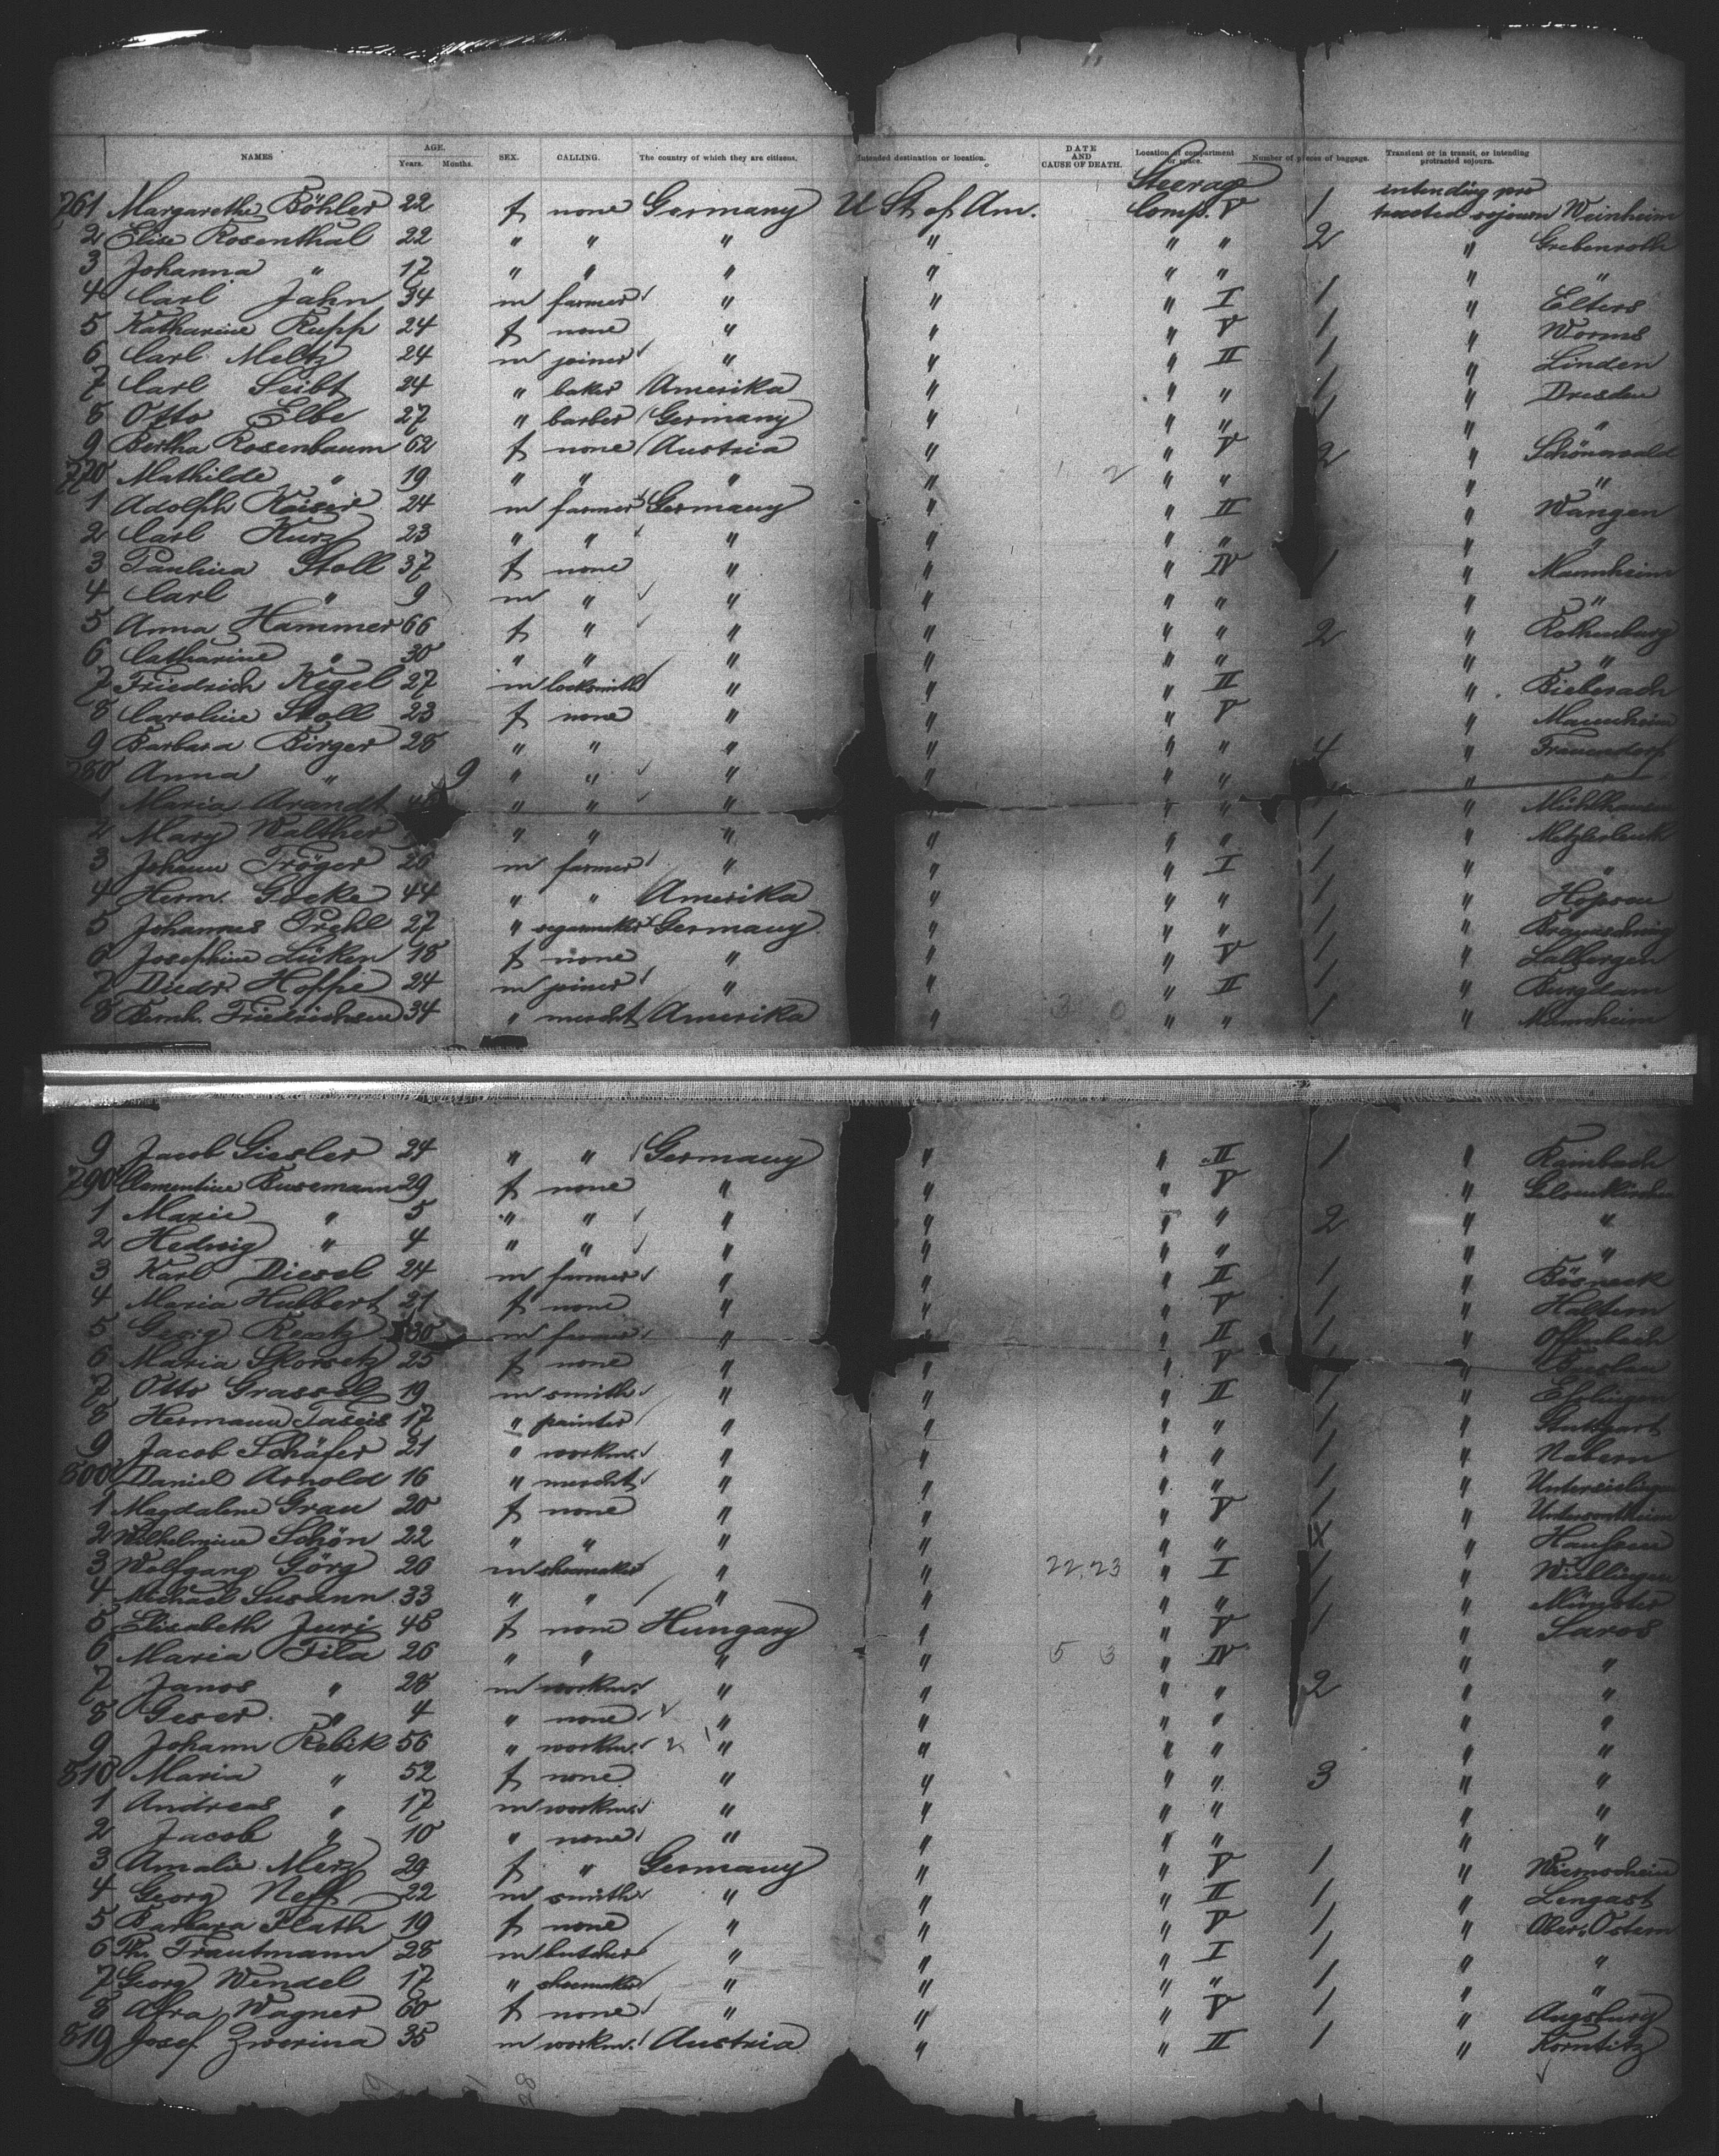 NAMES AGE. Years. Months. SEX. CALLING. The country of which they are citizens. Intended destination or location. DATE AND CAUSE OF DEATH. Location of compartment or space. Number of pieces of baggage. Transient or in transit, or intending protracted sojourn.
Steerage intending pro
761 Margarethe Böhler 22 f none Germany U St of Am. Comp. V 1 tracted sojourn Weinheim
2 Elise Rosenthal 22 " " " " " " 2 " Grebenroth
3 Johanna " 17 " " " " " " " "
4 Carl Jahn 34 m farmer " " " I 1 " Elters
5 Katharine Rupp 24 f none " " " V 1 " Worms
6 Carl Meltz 24 m joiner " " " II 1 " Linden
7 Carl Seibt 24 " baker Amerika " " " 1 " Dresden
8 Otto Elbe 27 " barber Germany " " " 1 " "
9 Bertha Rosenbaum 62 f none Austria " " V 2 " Schönwald
770 Mathilde " 19 " " " " " " " "
1 Adolph Kaiser 24 m farmer Germany " " II " Wangen
2 Carl Kurz 23 " " " " " " " "
3 Paulina Stoll 37 f none " " " IV 1 " Mannheim
4 Carl " 9 m " " " " " " "
5 Anna Hammer 66 f " " " " " 2 " Rothenburg
6 Catharine " 30 " " " " " " " "
7 Friedrich Kegel 27 m locksmith " " " II " Bieberach
8 Caroline Stoll 23 f none " " " V " Mannheim
9 Barbara Birger 28 " " " " " " 4 " Frauendorf
780 Anna " 9 " " " " " " " "
1 Maria Arandt " " " " " " 1 " Mühlhausen
2 Mary Walther " " " " " " 1 "
3 Johann Tröger 26 m farmer " " " I 1 " "
4 Herm. Goeke 44 " " Amerika " " " 1 " Hopsen
5 Johannes Prehl 27 " segarmaker Germany " " " 1 " Braunschweig
6 Josephine Lüken 18 f none " " " V 1 "
7 Diedr Hoppe 24 m joiner " " " II 1 " Burgdam
8 Bernh. Friedrichsen 34 " mercht Amerika " " " 1 " Mannheim
9 Jacob Giesler 24 " " Germany " " II 1 " Rambach
790 Clementine Busemann 29 f none " " " V "
1 Marie " 5 " " " " " " 2 " "
2 Hedwig " 4 " " " " " " " "
3 Karl Diesel 24 m farmer " " " II 1 "
4 Maria Hubbert 21 f none " " " V 1 " Haltern
5 Georg Rentz 30 m farmer " " " II 1 " Offenbach
6 Maria Skorsetz 25 f none " " " V 1 "
7 Otto Grassel 19 m smith " " " II 1 " Esslingen
8 Hermann 17 " painter " " " " 1 " Stuttgart
9 Jacob Schäfer 21 " workm. " " " " 1 " Nabern
800 Daniel Arnold 16 " mercht " " " " 1 "
1 Magdalene Grau 20 f none " " " V 1 " Untersontheim
2 Wilhelmine Schön 22 " " " " " " "
3 Wolfgang Görg 26 m shoemaker " " 22,23 " I 1 "
4 Michael Susann 33 " " " " " " 1 " Münster
5 Elisabeth Juri 45 f none Hungary " " V 1 " Saros
6 Maria Fila 26 " " " " 5 3 " IV " "
7 Janos " 28 m workm. " " " " 2 " "
8 Geser " 4 " none " " " " " "
9 Johann Rebik 56 " workm. " " " " " "
810 Maria " 52 f none " " " " 3 " "
1 Andreas " 17 m workm. " " " " " "
2 Jacob " 10 " none " " " " " "
3 Amalie Merz 29 f " Germany " " V 1 "
4 Georg Neff 22 m smith " " " II 1 " Lengast
5 Barbara Plath 19 f none " " " V 1 " Ober Ostern
6 Ph. Trautmann 28 m butcher " " " I 1 " "
7 Georg Wendel 17 " shoemaker " " " " 1 " "
8 Afra Wagner 60 f none " " " V 1 " Augsburg
819 Josef Zworina 35 m workm. Austria " " II 1 " Korntitz